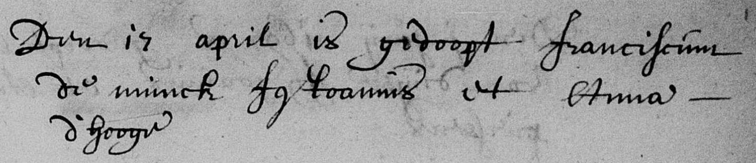 Den 17 april is gedoopt franciscus
de minck fs Joannis et Anna —
d'hooge